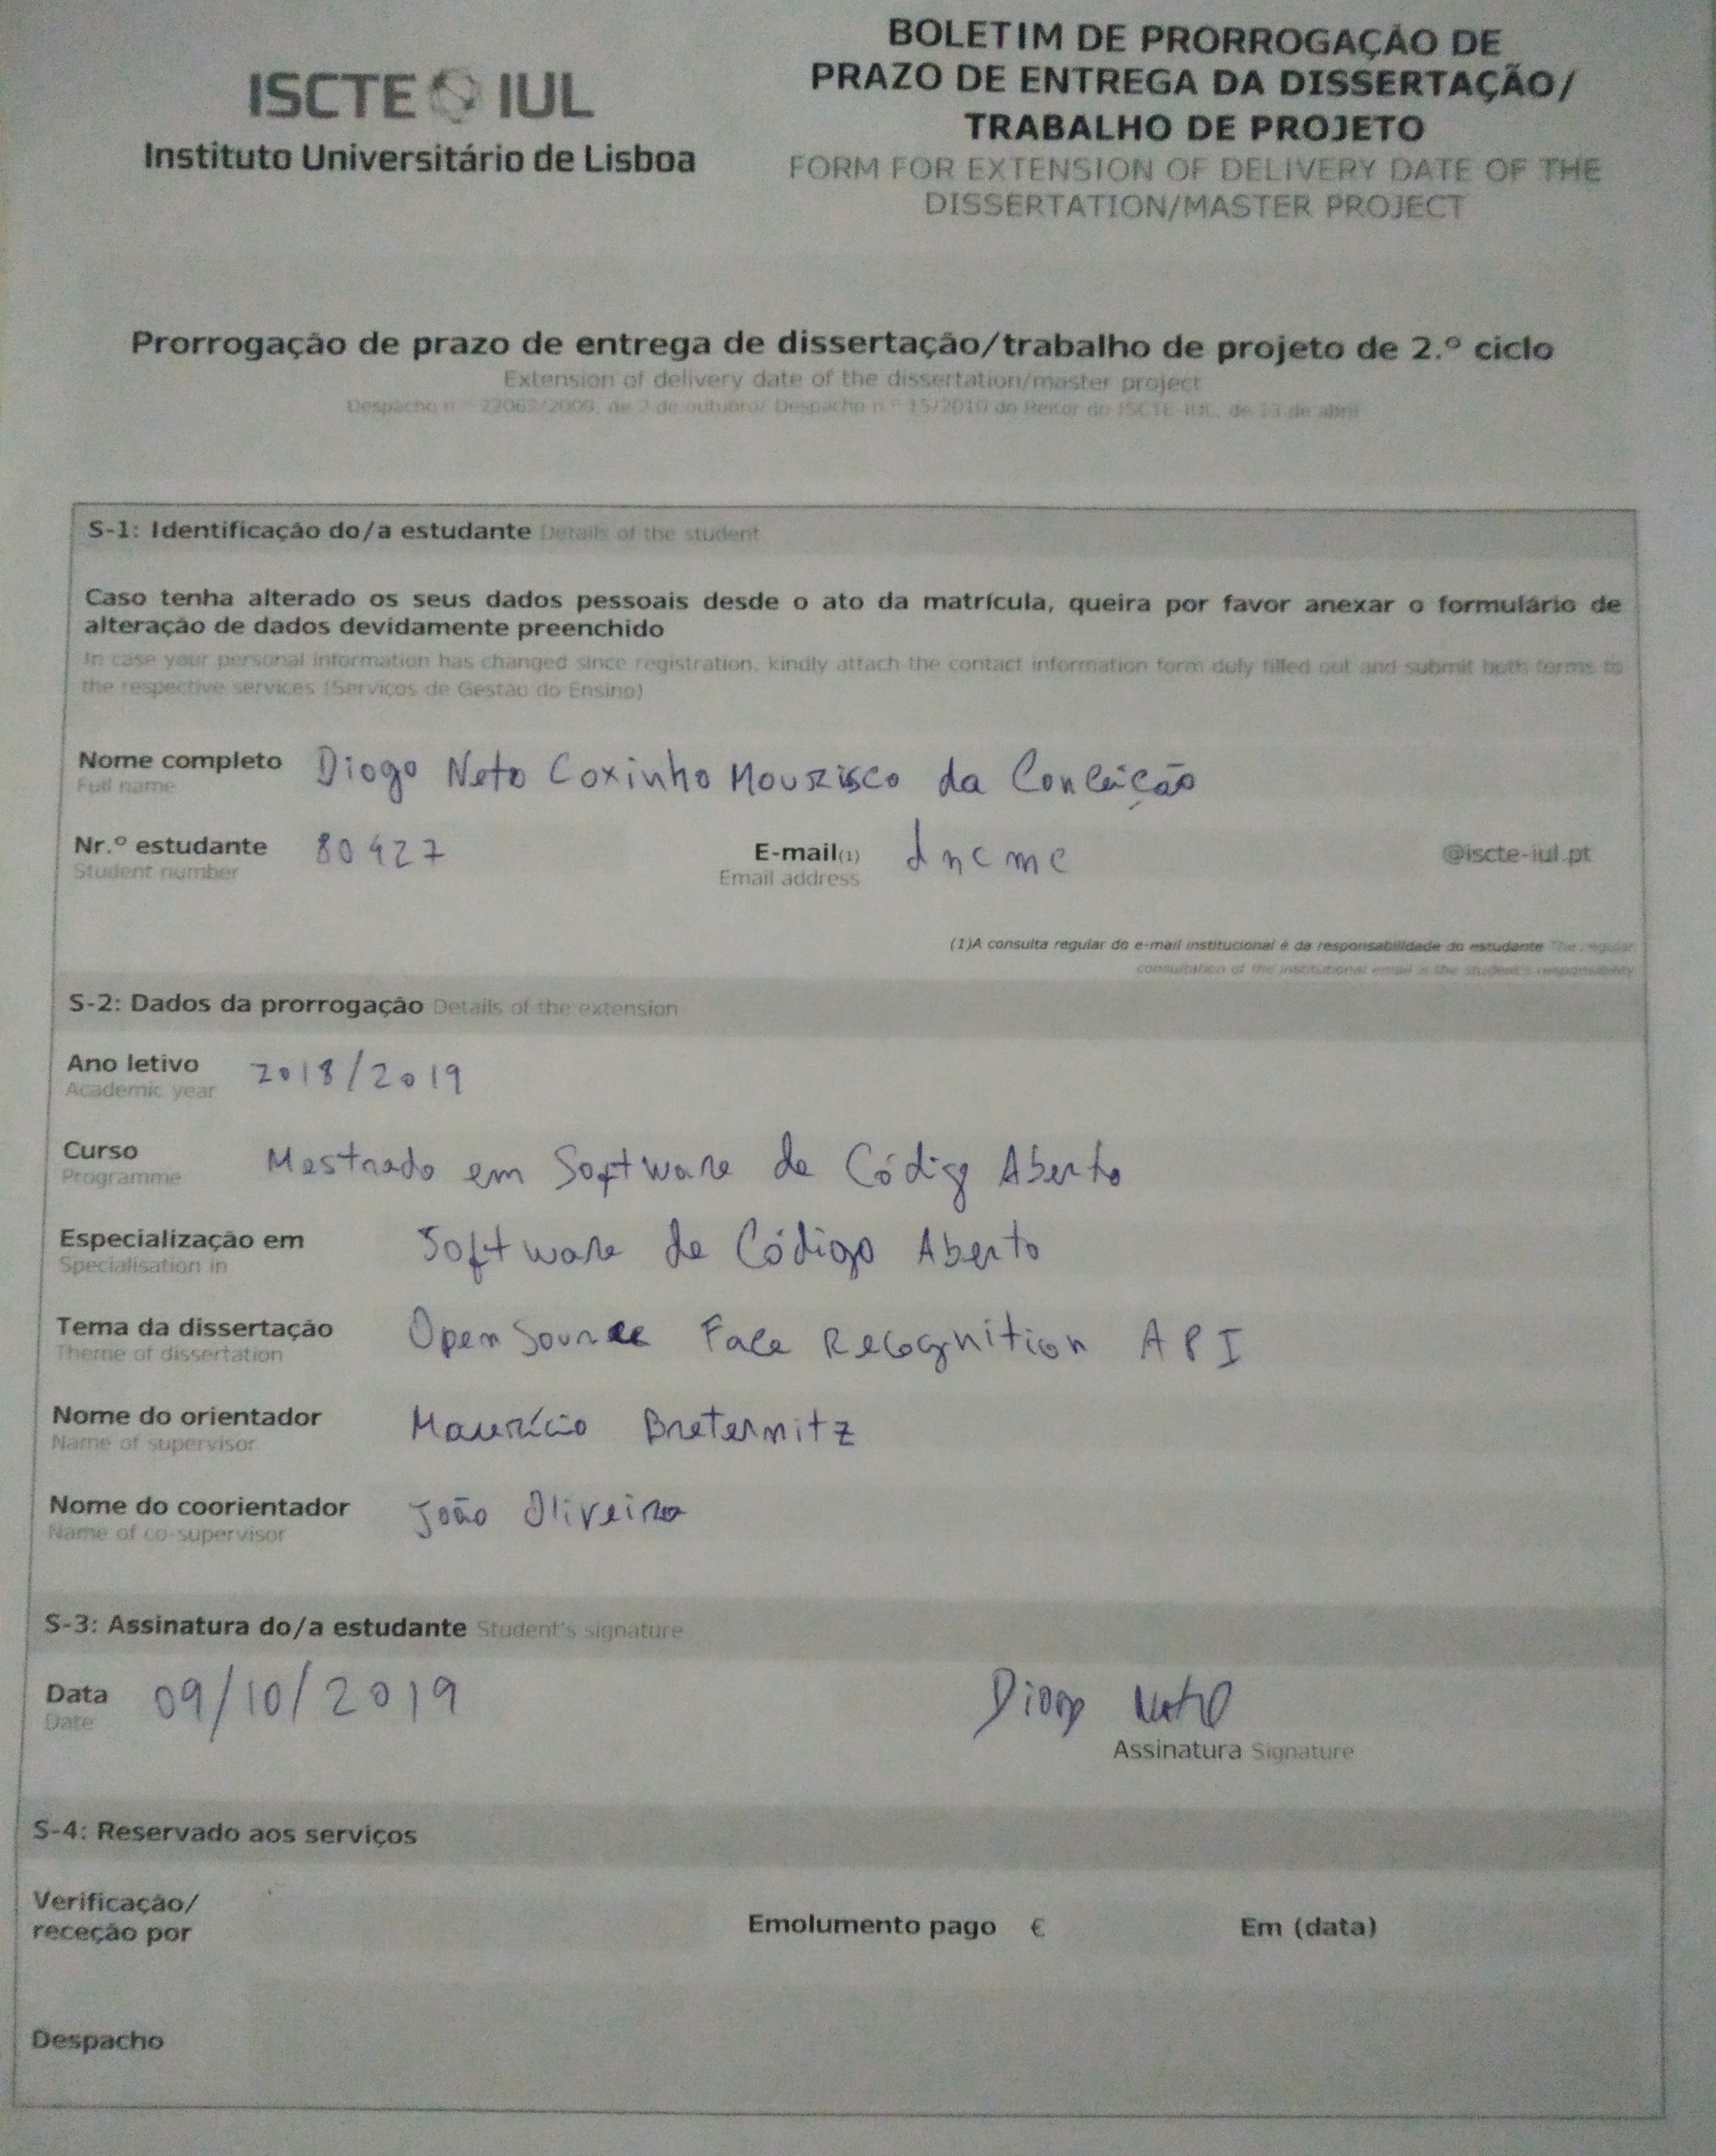 ISCTE IUL
Instituto Universitário de Lisboa
BOLETIM DE PRORROGAÇÃO DE
PRAZO DE ENTREGA DA DISSERTAÇÃO/
TRABALHO DE PROJETO
FORM FOR EXTENSION OF DELIVERY DATE OF THE
DISSERTATION/MASTER PROJECT
Prorrogação de prazo de entrega de dissertação/trabalho de projeto de 2.º ciclo
Extension of delivery date of the dissertation/master project
Despacho n.º 22062/2009, de 2 de outubro/ Despacho n.º 15/2010 do Reitor do ISCTE-IUL, de 13 de abril
S-1: Identificação do/a estudante Details of the student
Caso tenha alterado os seus dados pessoais desde o ato da matrícula, queira por favor anexar o formulário de
alteração de dados devidamente preenchido
In case your personal information has changed since registration, kindly attach the contact information form duly filled out and submit both forms to
the respective services (Serviços de Gestão do Ensino)
Nome completo Diogo Neto Coxinho Mourisco da Conceição
Full name
Nr.º estudante 80427 E-mail(1) dncmc @iscte-iul.pt
Student number Email address
(1)A consulta regular do e-mail institucional é da responsabilidade do estudante The regular
consultation of the institutional email is the student's responsibility
S-2: Dados da prorrogação Details of the extension
Ano letivo 2018/2019
Academic year
Curso Mestrado em Software de Códig Aberto
Programme
Especialização em Software de Código Aberto
Specialisation in
Tema da dissertação Open Source Face Recognition API
Theme of dissertation
Nome do orientador Maurício Breternitz
Name of supervisor
Nome do coorientador João Oliveira
Name of co-supervisor
S-3: Assinatura do/a estudante Student's signature
Data 09/10/2019 Diogo Neto
Date
Assinatura Signature
S-4: Reservado aos serviços
Verificação/
receção por Emolumento pago € Em (data)
Despacho